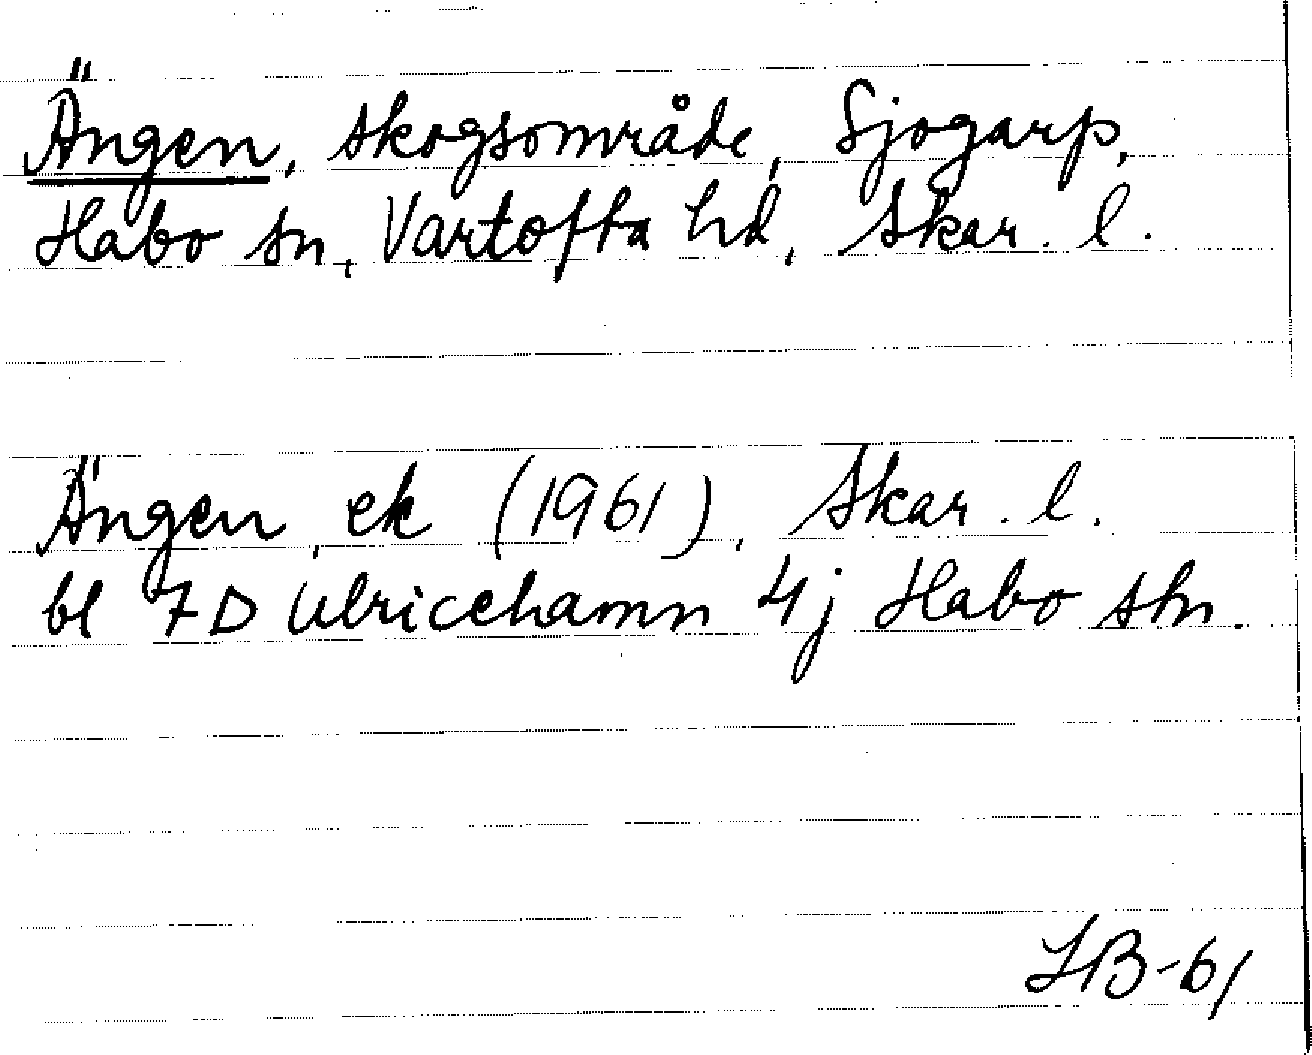 Ängen, skogsområde, Sjogarp,
Habo sn, Vartofta hd, Skar. l.
Ängen, ek (1961), Skar. l.
bl 7D Ulricehamn 4j Habo skn.
LB-61